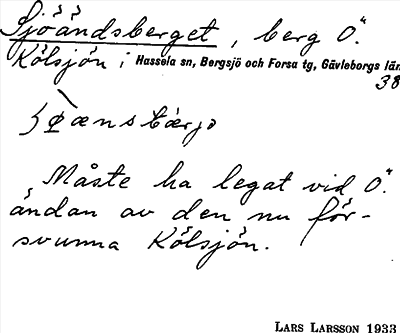 Sjöändsberget, berg O.
Kölsjön i Hassela sn, Bergsjö och Forsa tg, Gävleborgs län
38
Måste ha legat vid O.
ändan av den nu för-
svunna Kölsjön.
LARS LARSSON 1933